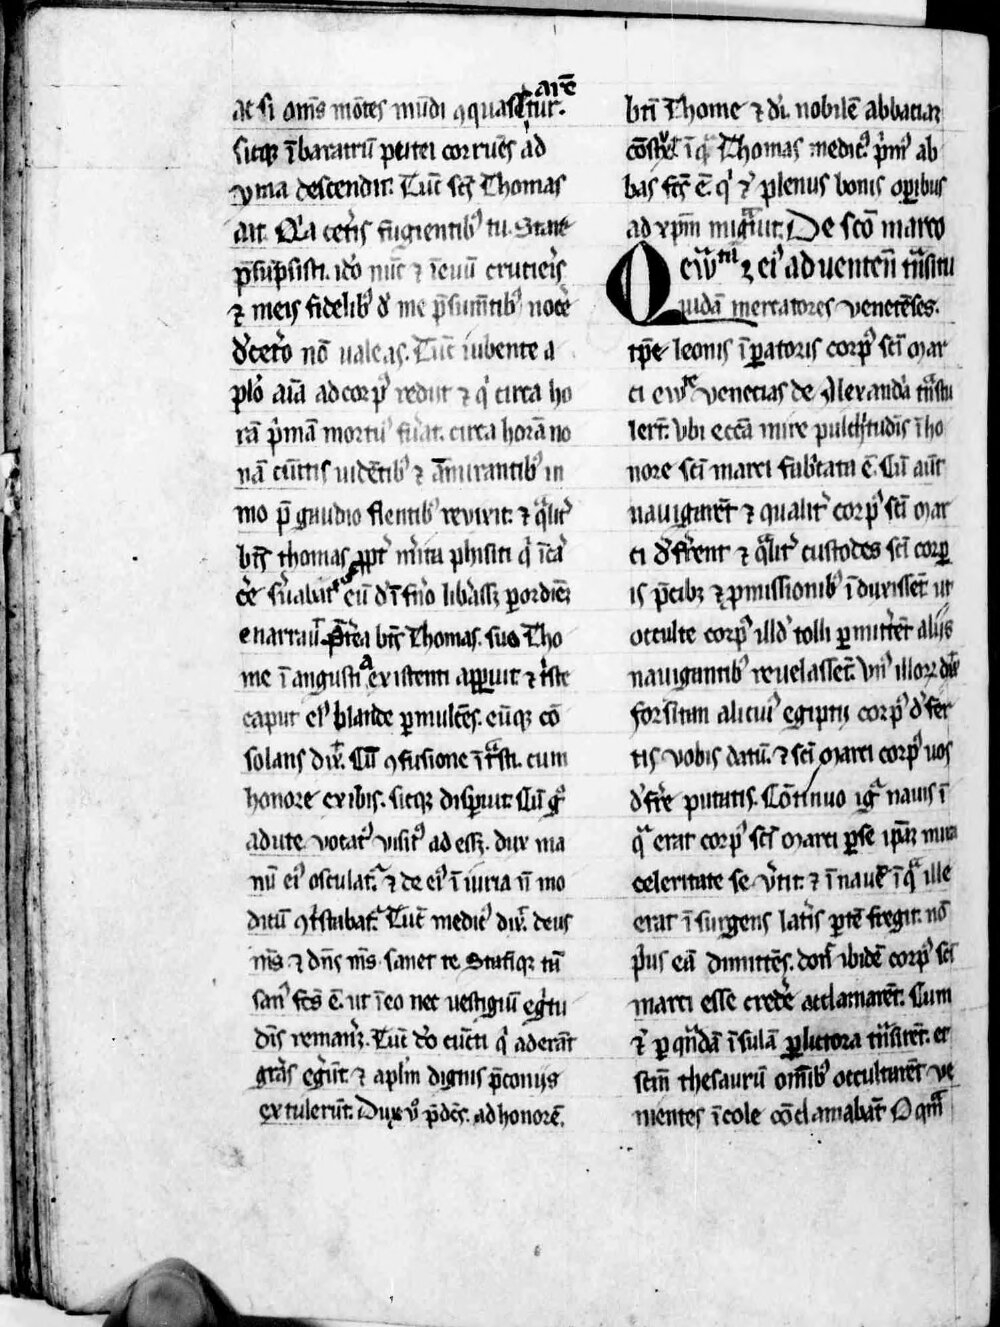 ac si om̄s mōtes mūdi ꝯquassarēt̄ur.
sicqꝫ ī baratrū putei corruēs ad
yma descendit. Tūc scs̄ Thomas
ait. Q'a ceteris fugientibꝰ tu stare
p̄sūpsisti. ido nūc ⁊ ī euū crucieris
⁊ meis fidelibꝰ ⁊ me p̄sum̄tibꝰ nocē
d'cet'o nō ualeas. Tūc iubente a
plo aīa ad corpꝰ redijt ⁊ q' circa ho
rā p'mā mortuꝰ fu'at. circa horā no
nā cūctis uidētibꝰ ⁊ am̄irantibꝰ im
mo p̄ gaudio flentibꝰ revixit. ⁊ q̄lit'
bt̄s thomas ꝓpt' m'ita phisici
cū d' īf'no lib'asset p ordiēꝫ
enarrauit. P̄t'ea bt̄s Thomas. suo Tho
me ī angustia existenti apparuit ⁊ t'ste
caput eiꝰ blande ꝑmulcēs. eūqꝫ cō
solans dix̄. Cū ꝯfusione īt̄sti. cum
honore exibis. sicqꝫ disparuit. Cū g°
a duce vocatꝰ visitꝰ adesset. dux ma
nū eiꝰ osculat̄. ⁊ de eiꝰ īiuria n̄ mo
dicū ꝯt'stabat̄. Tūc medicꝰ dix̄. deus
m̄s ⁊ dn̄s m̄s sanet te. Statiqꝫ tū
sanꝰ fcs̄ ē. ut ī eo nec uestigiū eg'tu
dīs remanꝫ. Tūc v'o cūcti q' aderāt
grās eg'ūt ⁊ aplm̄ dignis p̄conijs
extulerūt. Dux v° p̄dcs̄. ad honorē.
bt̄i Thome ⁊ dī. nobilē abbaciaꝫ
cōstꝰxit ī qᵃ Thomas medicꝰ p'mꝰ ab
bas fcs̄ ē. q' ⁊ plenus bonis oꝑibus
ad xp̄m miḡuit. De sc̄o marco
ew̄tᵃ ⁊ eiꝰ ad ueneciā t̄nsitu
Quidā mercatores venecēses.
tp̄e leonis īꝑatoris corpꝰ sc̄i Mar
ci ew̄te venecias de Alexand'a t̄nstu
lert̄. Vbi ecc̄a mire pulch'tudīs ī ho
nore sc̄i marci fab'cata ē. Cū aūt
nauigarēt ⁊ qualit' corpꝰ sc̄i Mar
ci d'ferent ⁊ q̄lit' custodes sc̄i corp̄
is p̄cibꝫ ⁊ ꝓmissionibꝰ īduxissēt ut
occulte corpꝰ illd' tolli ꝑmitt'ēt alijs
nauigantibꝰ reuelassēt. Vnꝰ illoꝝ dix̄
forsitan alicuiꝰ egiptij corpꝰ d'fer
tis vobis datū. ⁊ sc̄i Marci corpꝰ uos
d'ferre putatis. Cōtinuo iḡ nauis ī
qᵃ erat corpꝰ sc̄i Marci ꝑ se ipāꝫ mira
celeritate se v'tit. ⁊ ī nauē ī qᵃ ille
erat īsurgens lat'is ꝑtē fregit. nō
p'us eā dimittēs. donꝫ ibidē corpꝰ sc̄i
marci esse cred'e acclamarēt. Cum
⁊ ꝑ q̄ndā īsulā ꝑ lictora t̄nsirēt. et
scm̄ thesaurū om̄ibꝰ occultarēt ve
nientes īcole cōclamabāt O qm̄